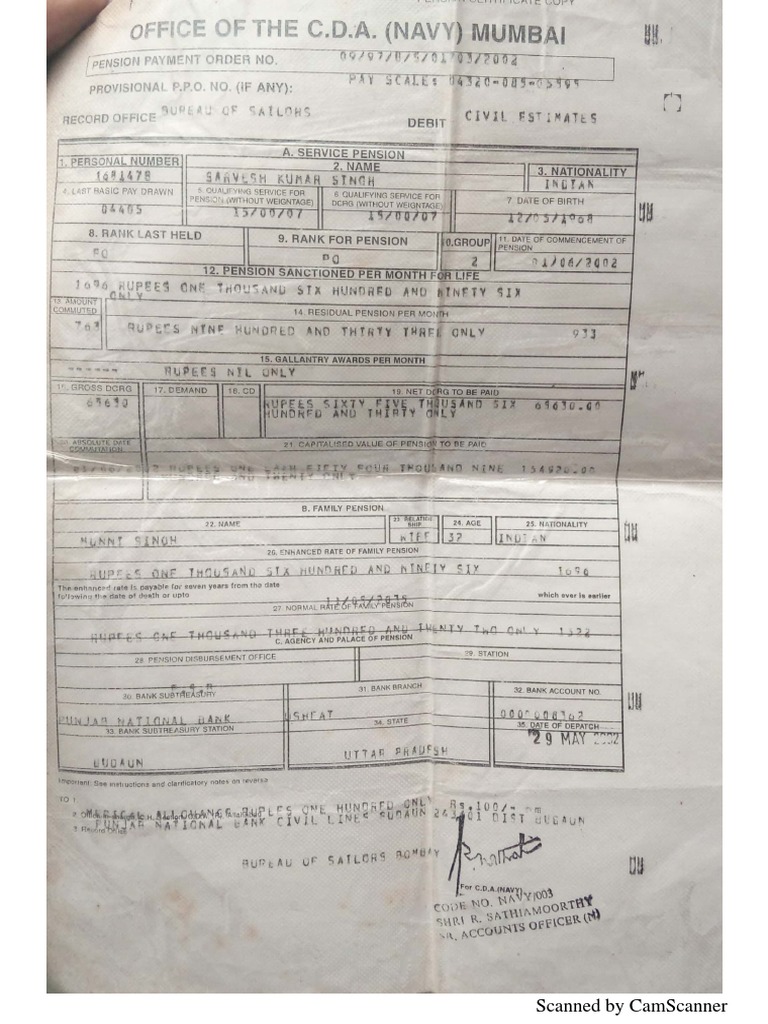 PENSION CERTIFICATE COPY
OFFICE OF THE C.D.A. (NAVY) MUMBAI
PENSION PAYMENT ORDER NO.
PAY SCALE:
PROVISIONAL P.P.O. NO. (IF ANY):
RECORD OFFICE BUREAU OF SAILORS DEBIT CIVIL ESTIMATES
A. SERVICE PENSION
1. PERSONAL NUMBER 2. NAME 3. NATIONALITY
SARVESH KUMAR SINGH INDIAN
4. LAST BASIC PAY DRAWN 5. QUALIFYING SERVICE FOR PENSION (WITHOUT WEIGNTAGE) 6. QUALIFYING SERVICE FOR DCRG (WITHOUT WEIGNTAGE) 7. DATE OF BIRTH
15/00/07 15/00/07 12/05/1968
8. RANK LAST HELD 9. RANK FOR PENSION 10. GROUP 11. DATE OF COMMENCEMENT OF PENSION
PO PO 2 01/06/2002
12. PENSION SANCTIONED PER MONTH FOR LIFE
1696 RUPEES ONE THOUSAND SIX HUNDRED AND NINETY SIX ONLY
13. AMOUNT COMMUTED 14. RESIDUAL PENSION PER MONTH
763 RUPEES NINE HUNDRED AND THIRTY THREE ONLY 933
15. GALLANTRY AWARDS PER MONTH
------ RUPEES NIL ONLY
16. GROSS DCRG 17. DEMAND 18. CD 19. NET DCRG TO BE PAID
65630 RUPEES SIXTY FIVE THOUSAND SIX 65630.00
HUNDRED AND THIRTY ONLY
20. ABSOLUTE DATE COMMUTATION 21. CAPITALISED VALUE OF PENSION TO BE PAID
RUPEES ONE LAKH FIFTY FOUR THOUSAND NINE 154920.00
HUNDRED AND TWENTY ONLY
B. FAMILY PENSION
22. NAME 23. RELATIONSHIP 24. AGE 25. NATIONALITY
MUNNI SINGH WIFE INDIAN
26. ENHANCED RATE OF FAMILY PENSION
RUPEES ONE THOUSAND SIX HUNDRED AND NINETY SIX 1696
The enhanced rate is payable for seven years from the date
following the date of death or upto which ever is earlier
27. NORMAL RATE OF FAMILY PENSION
RUPEES ONE THOUSAND THREE HUNDRED AND TWENTY TWO ONLY 1322
C. AGENCY AND PALACE OF PENSION
28. PENSION DISBURSEMENT OFFICE 29. STATION
30. BANK SUBTREASURY 31. BANK BRANCH 32. BANK ACCOUNT NO.
PUNJAB NATIONAL BANK USHEAT
33. BANK SUBTREASURY STATION 34. STATE 35. DATE OF DEPATCH
BUDAUN UTTAR PRADESH 29 MAY 2002
Important: See instructions and clarificatory notes on reverse
TO 1
MEDICAL ALLOWANCE RUPEES ONE HUNDRED ONLY Rs.100/- pm
PUNJAB NATIONAL BANK CIVIL LINES BUDAUN DIST BUDAUN
3 Record Office
BUREAU OF SAILORS BOMBAY
For C.D.A.(NAVY)
CODE NO. NAVY/003
SHRI R. SATHIAMOORTHY
SR. ACCOUNTS OFFICER (N)
Scanned by CamScanner